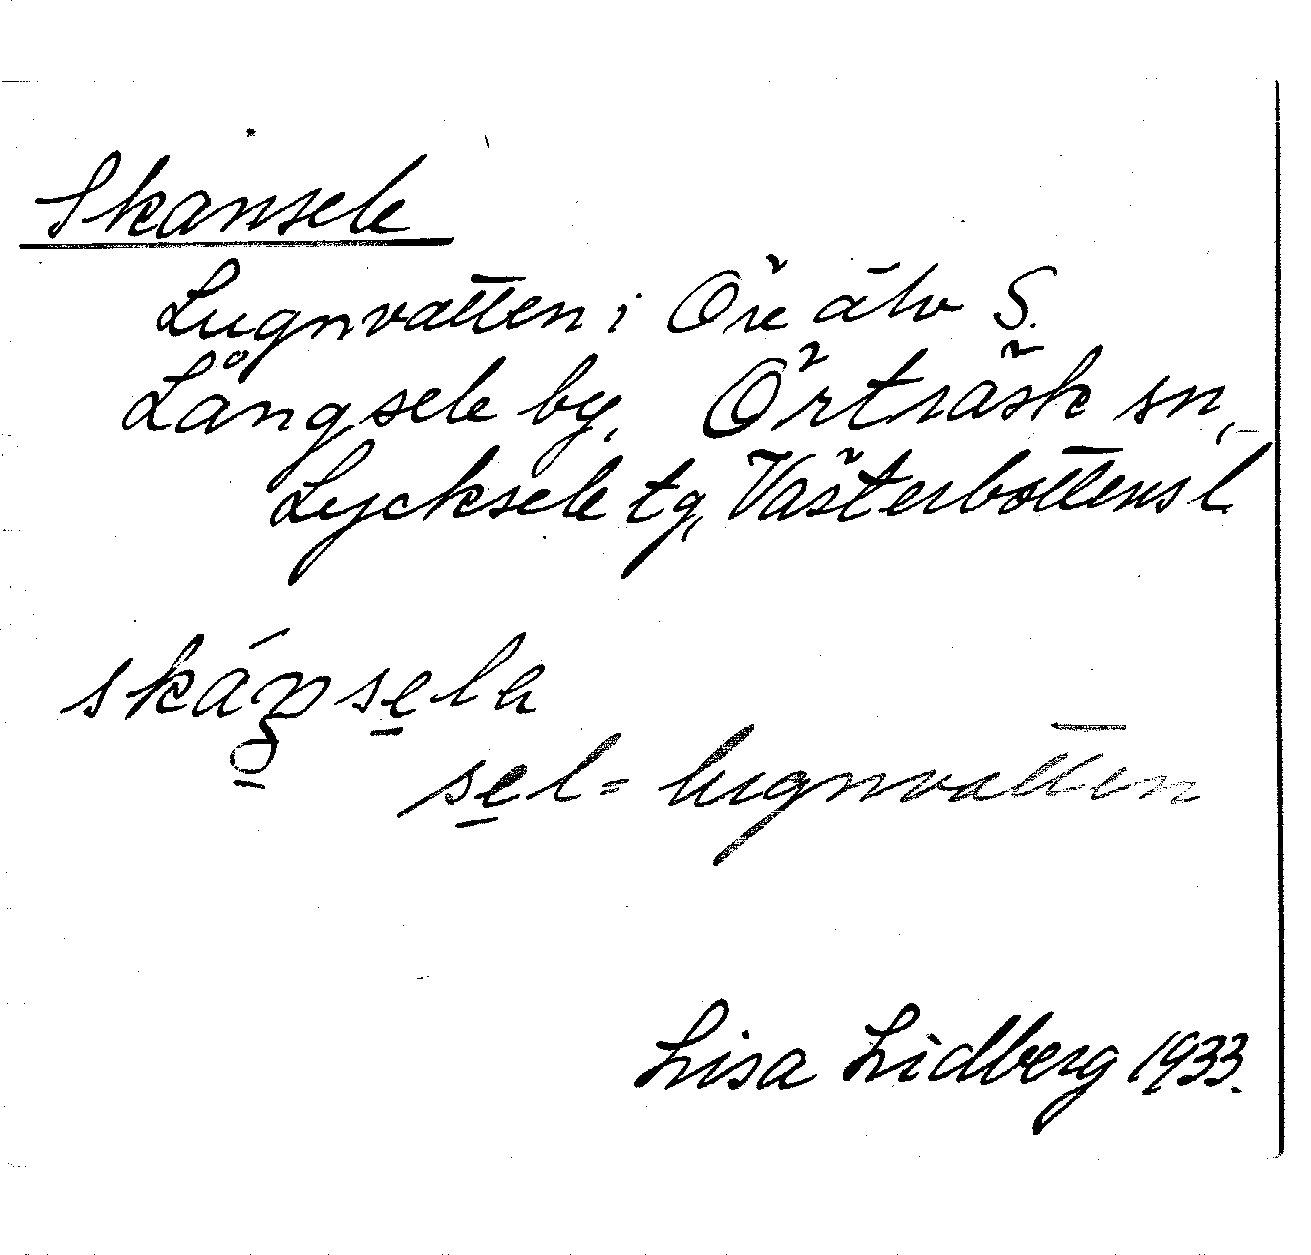 Skansele
Lugnvatten i Öre älv S.
Långsele by, Örträsk sn,
Lycksele tg, Västerbottens l.
skánsela
sel = lugnvatten
Lisa Lidberg 1933.